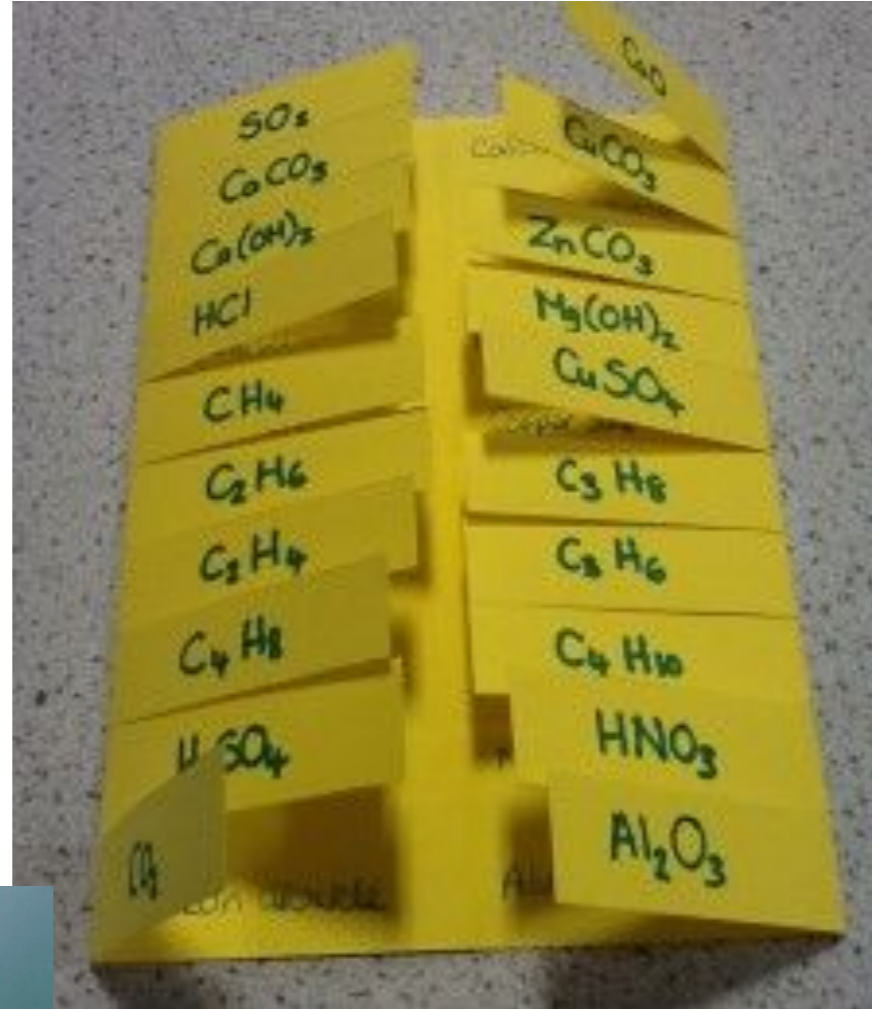 SO₂
CaCO₃
Ca(OH)₂
HCl
CH₄
C₂H₆
C₂H₄
C₄H₈
H₂SO₄
CO₂
CaO
CuCO₃
ZnCO₃
Mg(OH)₂
CuSO₄
C₃H₈
C₃H₆
C₄H₁₀
HNO₃
Al₂O₃